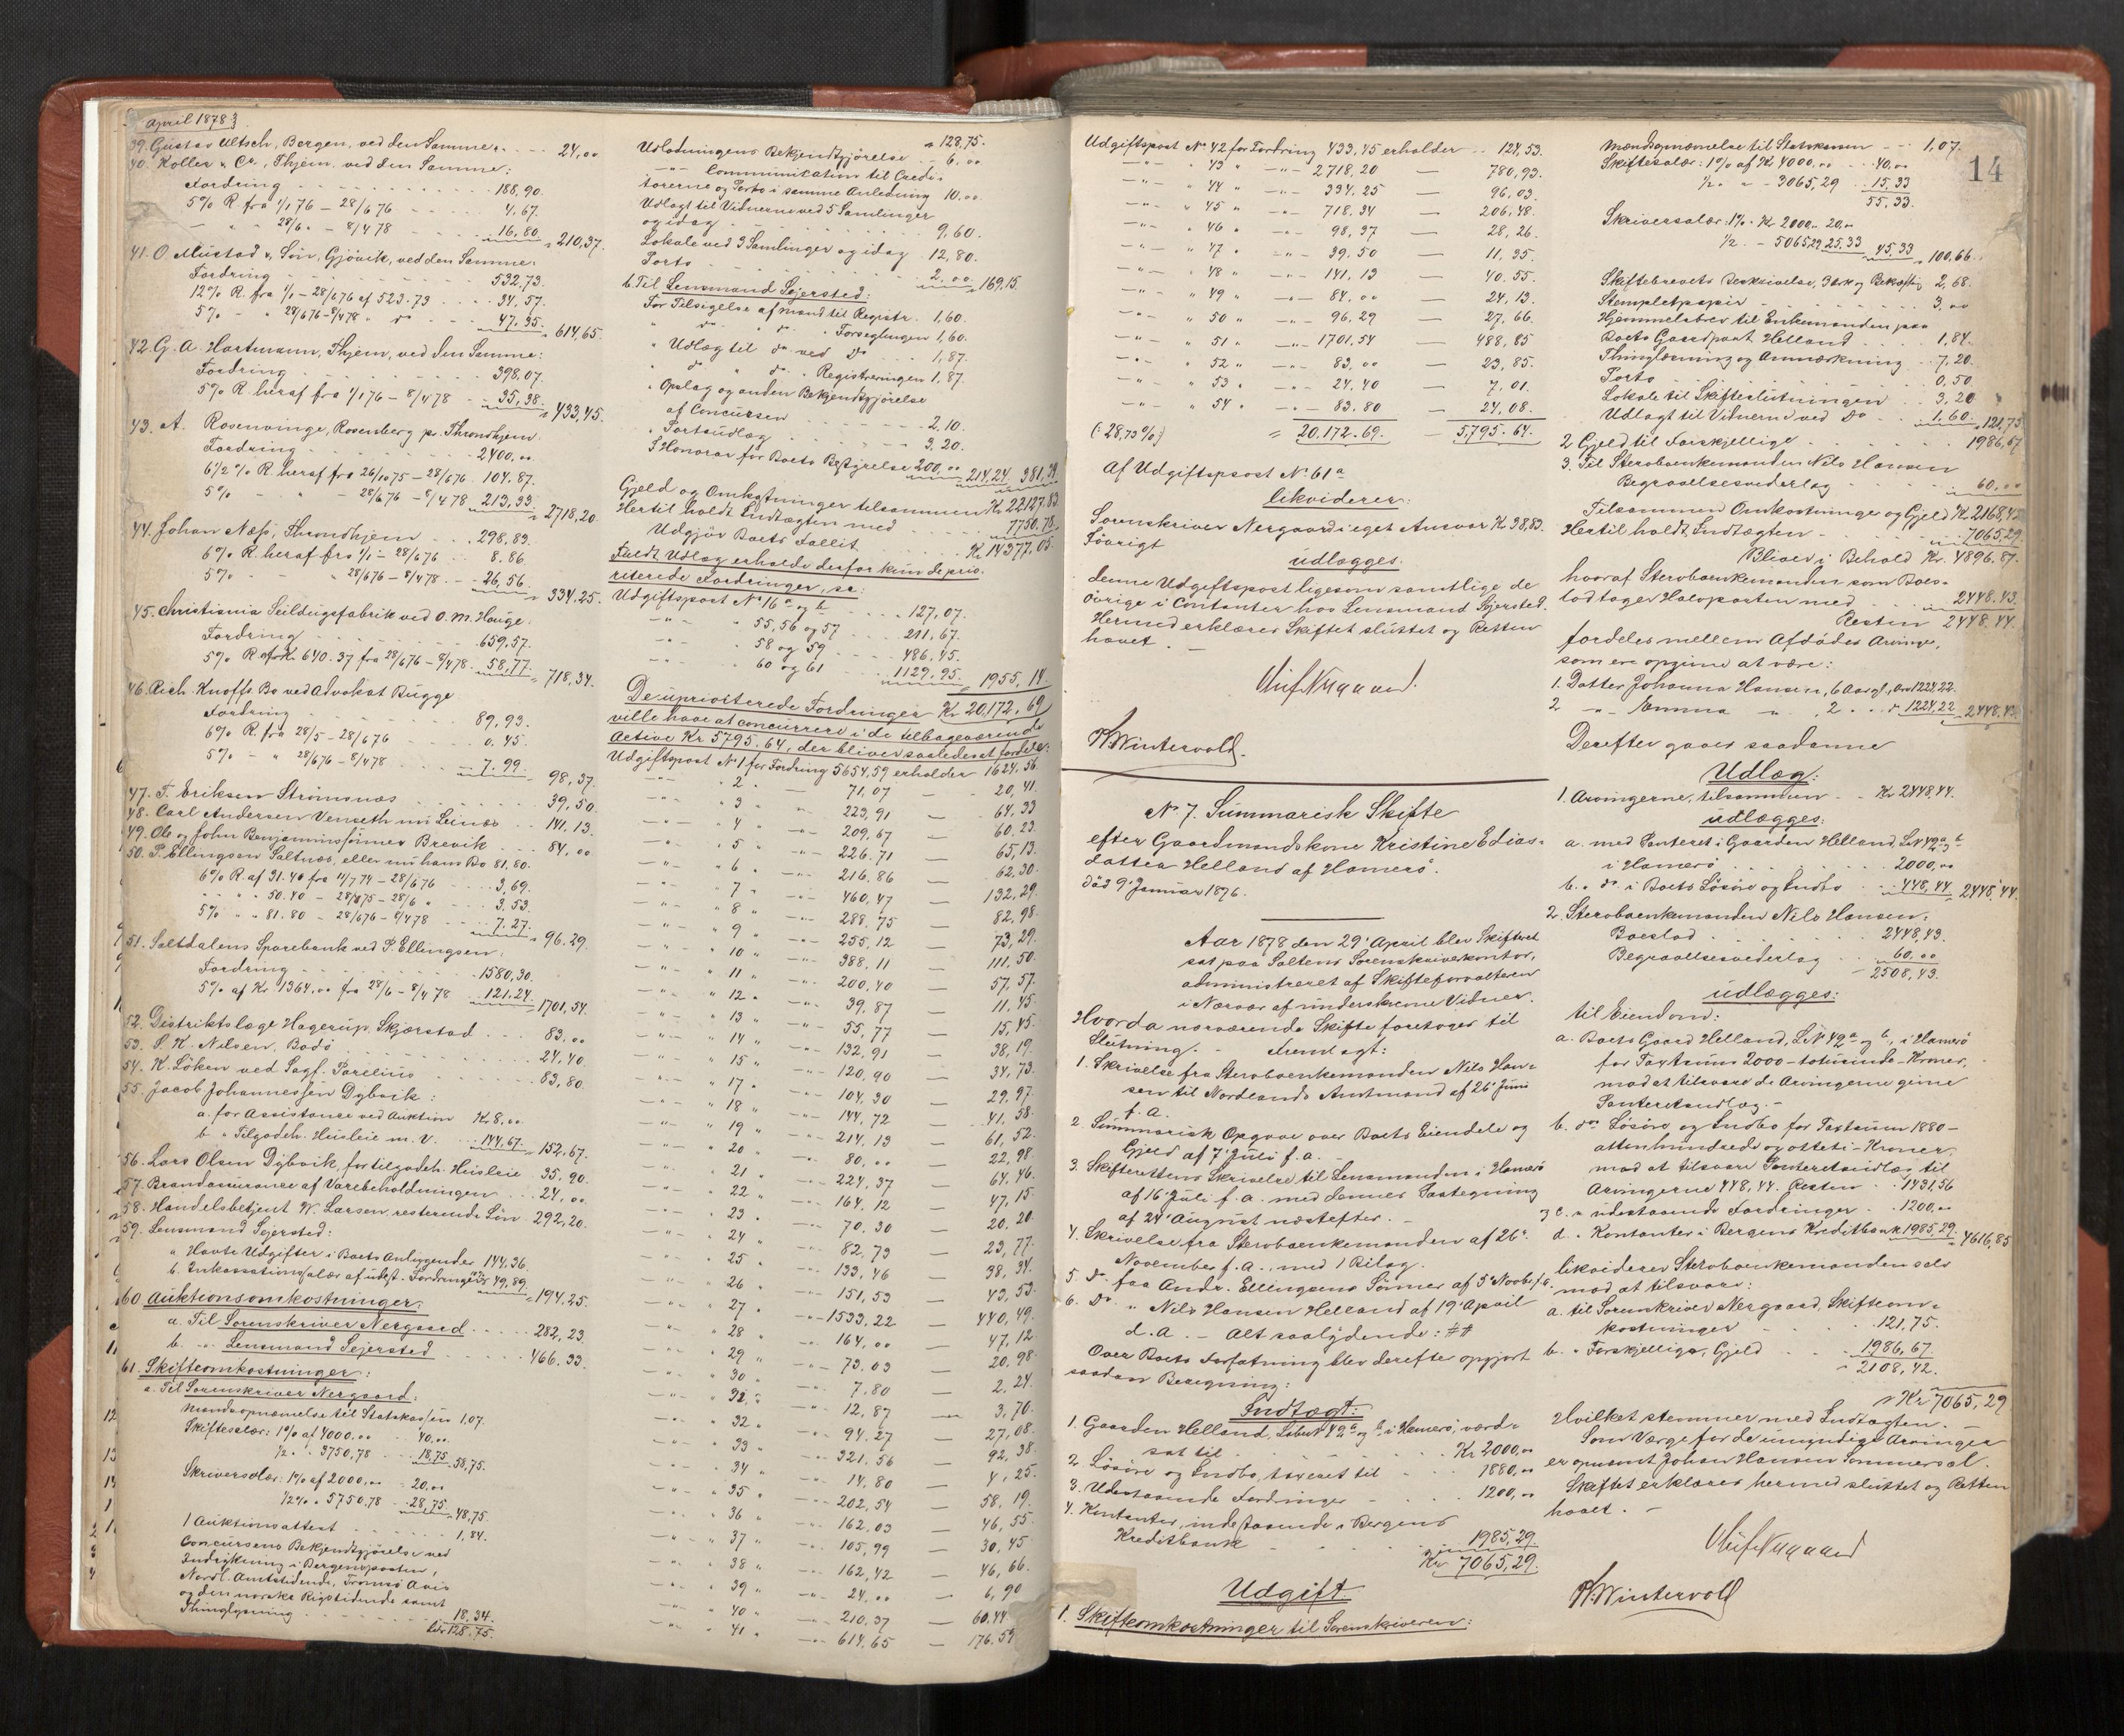 April 1878
39. Gustav Ultsch, Bergen, ved den Samme. 24,00
40. Koller & Co., Thjem, ved den Samme:
Fordring 188,90.
5% R. fra 1/1 76 – 28/6 76 4,67.
28/6 - 8/4 78 16,80 210,37.
41. O. Mustad & Søn, Gjøvik, ved den Samme:
Fordring 532,73.
12% R. fra 1/1 – 28/6 76 af 523.73 34,57.
5% - " 28/6 76 – 8/4 78 " do 47,35. 614,65
42. G. A. Hartmann, Thjem, ved den Samme:
Fordring 398,07.
5% R. heraf fra 1/1 76 – 8/4 78 35,38. 433,45.
43. A. Rosenvinge, Rosenberg pr. Throndhjem.
Fordring 2400,00.
6 1/2 % R. heraf fra 26/10 75 – 28/6 76 104.87.
5% - " - 28/6 76 – 8/4 78 213,33 2718,20
44. Johan Næss, Throndhjem 298,83.
6% R. heraf fra 1/1 – 28/6 76 8.86
5% - 28/6 76 – 8/4 78. 26,56. 334,25.
45. Christiania Seildugsfabrik ved O. M. Hauge.
Fordring 659,57.
5% R. af Kr. 640.37 fra 28/6 76 – 8/4 78. 58,77. 718,34.
46. Rich. Knoffs Bo ved Advokat Bugge
Fordring 89,93.
6% R. fra 28/5 – 28/6 76 0,45.
5% - " 28/6 76 – 8/4 78 7.99 98,37.
47. T. Eriksen Strømsnæs 39,50.
48. Carl Andersen Venseth nu Leinæs 141,13.
49. Ole og John Benjaminsønner Brevik 84,00
50. P. Ellingsen Saltnæs, eller nu hans Bo 81,80.
6% R. af 31.40 fra 11/7 74 – 28/6 76 3,69.
" " 50.40 - 28/8 75 – 28/6 " 3.53.
5% " " 81.80 - 28/6 76 – 8/4 78 7.27. 96.29.
51. Saltdalens Sparebank ved P. Ellingsen:
Fordring 1580,30.
5% af Kr. 1364,00 fra 28/6 – 8/4 78 121,24. 1701,54.
52. Distriktslæge Hagerup, Skjærstad 83,00
53. P. K. Nilsen, Bodø 24.40.
54. K. Løken ved Sagf. Parelius 83,80.
55. Jacob Johannessen Dybvik:
a. for Assistance ved Auktion Kr. 8,00
b. " Tilgodeh. Husleie m. V. 144,67. 152,67.
56. Lars Olsen Dybvik, for tilgodeh. Husleie 35,90.
57. Brandassurance af Varebeholdningen 24,00
58. Handelsbetjent W. Larsen, resterende Løn 292,20.
59. Lensmand Sejersted:
a. Havte Udgifter i Boets Anliggender 144,36.
b. Inkassationssalær af udest. Fordringer 49,89. 194,25.
60. Auktionsomkostninger:
a. Til Sorenskriver Nergaard 282,23
b. " Lensmand Sejersted 466.33.
61. Skifteomkostninger:
a. Til Sorenskriver Nergaard:
Mandsopnævnelse til Statskassen 1,07.
Skiftesalær: 1% af 4000,00 40,00
1/2 - " 3750,78 18,75 58,75.
Skriversalær: 1% af 2000,00 20,00
1/2% " 5750,78 28,75 48,75.
1 Auktionsattest 1,84.
Concursens Bekjendtgjørelse ved
Indrykning i Bergensposten,
Nordl. Amtstidende, Tromsø Avis
og den norske Rigstidende samt
Thinglysning 18,34.
Lat. 128,75.
128,75.
Udlodningens Bekjendtgjørelse 6,00
Communication til Credi-
torerne og Porto i samme Anledning 10,00
Udlagt til Vidnerne ved 5 Samlinger
og idag 9,60.
Lokale ved 3 Samlinger og idag 12,80.
Porto 2,00 169,15.
b. Til Lensmand Sejersted:
For Tilsigelse af Mænd til Registr. 1,60.
" do " do " Forseglingen 1,60.
" Udlæg til do ved do 1,87.
" do " do " Registreringen 1,87.
" Opslag og anden Bekjendtgjørelse
af Concursen 2,10.
" Portoudlæg 3,20.
I Honorar for Boets Bestyrelse 200,00 214,24 381,39
Gjeld og Omkostninger tilsammen Kr 22127.83
Hertil holdt Indtægten med 7750.78.
Udgjør Boets Fallit Kr. 14377.05.
Fuldt Udlæg erholde derfor kun de prio-
riterede Fordringer, se:
Udgiftspost No 16 a og b 127,07.
" 55, 56 og 57 211,67.
" 58 og 59 486,45.
" 60 og 61 1129,95. 1955,14
De upriorterede Fordringer Kr 20,172,69
ville have at concurrere i de tilbageværende
Active Kr 5795.64, der bliver saaledes at fordele:
Udgiftspost No 1 for Fordring 5654,59 erholder 1624,56
" 2 " 71,07 20,41.
" 3 " 223,91 — 64,33
" 4 " 209,67 — 60.23.
" 5 " 226.71 — 65,13.
" 6 " 216,86 — 62,30.
" 7 " 460,47 — 132,29.
" 8 " 288,75 — 82,98.
" 9 " 255,12 — 73,29.
" 10 " 388,11 — 111,50.
" 11 " 200,40 — 57,57.
" 12 " 39,87 — 11,45.
" 13 " 55,77 — 15,45.
" 14 " 132,91 — 38,19.
" 15 " 120,90 — 34,73.
" 17 " 104,30 — 29,97.
" 18 " 144,72 — 41,58.
" 19 " 214,13 — 61,52.
" 20 " 80,00 — 22,98.
" 21 " 224,37 — 64,46.
" 22 " 164,12 — 47,15.
" 23 " 70,30 — 20,20.
" 24 " 82,73 — 23,77.
" 25 " 133,46 — 38,34.
" 26 " 151,53 — 43,53.
" 27 " 1533,22 — 440,49.
" 28 " 164,00 — 47,12.
" 29 " 73.03 — 20,98
" 30 " 7,80 — 2,24.
" 31 " 12,87 — 3,70.
" 32 " 94.27 — 27,08.
" 33 " 321,56 — 92,38.
" 34 " 14,80 — 4,25.
" 35 " 202,54 — 58,19.
" 36 " 162,03 — 46,55.
" 37 " 105,99 — 30,45
" 38 " 162,42 — 46,66.
" 39 " 24,00 — 6,90
" 40 " 210,37 — 60.44
" 41 " 614,65 — 176,59
14
Udgiftspost No 42 for Fordring 433,45 erholder 124,53.
" 43 " 2718,20 — 780,93.
" 44 " 334,25 — 96,03.
" 45 " 718,34 — 206,48.
" 46 " 98,37 — 28,26.
" 47 " 39,50 — 11,35.
" 48 " 141,13 — 40.55.
" 49 " 84,00 — 24,13.
" 50 " 96,29 — 27,66.
" 51 " 1701,54 — 488,85
" 52 " 83,00 — 23,85.
" 53 " 24,40 — 7,01.
" 54 " 83.80 — 24,08.
(: 28,73 % :) 20,172.69. 5,795.64.
Af Udgiftspost No 61 a
likviderer:
Sorenskriver Nergaard i eget Ansvar Kr 38,83.
Iøvrigt
udlægges:
denne Udgiftspost ligesom samtlige de
øvrige i Contanter hos Lensmand Sejersted.
Hermed erklæres Skiftet sluttet og Retten
hævet. —
W. Wintervold.
No 7. Summarisk Skifte
efter Gaardmandskone Kristine Elias-
datter Helland af Hamerø.
død 9' Januar 1876.
Aar 1878 den 29' April blev Skifteret
sat paa Saltens Sorenskriverkontor,
administreret af Skifteforvalteren
i Nærvær af underskrevne Vidner.
Hvorda nærværende Skifte foretoges til
Slutning. - Fremlagt:
1. Skrivelse fra Stervboenkemanden Nils Han-
sen til Nordlands Amtmand af 26' Juni
f. a.
2. Summarisk Opgave over Boets Eiendele og
Gjeld af 7' Juli f. a. -
3. Skifterettens Skrivelse til Lensmanden i Hamerø
af 16' Juli f. a. med Sammes Paategning
af 24' August næstefter. -
4. Skrivelse fra Stervboenkemanden af 26'
November f. A., med 1 Bilag.
5. do fra Andr. Ellingsens Sønner af 5' Novbr f. a.
6. do " Nils Hansen Helland af 19' April
d. A. - Alt saalydende: ##
Over Boets Forfatning blev derefter opgjort
saadan Beregning:
Indtægt:
1. Gaarden Helland, Løbe No 42 a og b i Hamerø, værd-
sat til Kr 2000,00
2. Løsøre og Indbo, taxeret til 1880,00
3. Udestaaende Fordringer 1200,00
4. Kontanter, indestaaende i Bergens
Kreditbank 1985,29.
Kr 7065,29.
Udgift
1. Skifteomkostninger til Sorenskriveren:
Mandsopnævnelse til Statskassen 1,07.
Skiftesalær: 1% af Kr 4000,00 40,00
1/2 " " - 3065,29 15,33
55,33.
Skriversalær: 1% - Kr 2000,00 20,00
1/2 - - 5065,29 25,33 45,33 100,66
Skiftebrevets Beskrivelse, Bark og Bekræft. 2,68.
Stempletpapir 3,00
Hjemmelsbrev til Enkemanden paa
Boets Gaardpart Helland 1,84.
Thinglæsning og Anmærkning 7,20.
Porto 0,50.
Lokale til Skifteslutningen 3,20
Udlagt til Vidnerne ved do 1,60. 121,75
2. Gjeld til Forskjellige 1986,67
3. Til Stervboenkemanden Nils Hansen
Begravelsesvederlag 60,00
Tilsammen Omkostninger og Gjeld Kr. 2168,42
Hertil holdt Indtægten 7065,29
Bliver i Behold Kr. 4896.87.
hvoraf Stervboenkemanden som Boes-
lod tager Halvparten med 2448.43.
Resten 2448.44.
fordeles mellem Afdødes Arvinger,
som ere opgivne at være:
1. Datter Johanna Hansen, 6 Aar gl., Arv 1224,22.
2. " Emma " , 2 " " do 1224,22 2448,43.
Derefter gaves saadanne
Udlæg:
1. Arvingerne, tilsammen Kr 2448,44.
udlægges:
a. med Panteret i Gaarden Helland, L.No 42 a og b
i Hamerø 2000,00
b. " do i Boets Løsøre og Indbo 448,44 2448,44.
2. Stervboenkemanden Nils Hansen:
Boeslod 2448,43.
Begravelsesvederlag 60,00
2508,43.
udlægges:
til Eiendom:
a. Boets Gaard Helland, L.No 42 a og b, i Hamerø
for Taxtsum 2000 - totusinde - Kroner,
mod at tilsvare de Arvingerne givne
Panteretsudlæg. -
b. do Løsøre og Indbo for Taxtsum 1880 -
attenhundrede og otteti - Kroner,
mod at tilsvare Panteretsudlæg til
Arvingerne 448,44. Resten 1431,56
c. " udestaaende Fordringer 1200,00
d. " Kontanter i Bergens Kreditbank 1985,29. 4616,85
likviderer Stervboenkemanden selv
mod at tilsvare:
a. til Sorenskriver Nergaard, Skifteom-
kostninger 121,75.
b. " Forskjellige, Gjeld 1986,67.
2108,42.
Kr 7065,29
Hvilket stemmer med Indtægten.
Som Værge for de umyndige Arvinger
er opnævnt Johan Hansen Sommersel.
Skiftet erklæres hermed sluttet og Retten
hævet. -
W. Wintervold